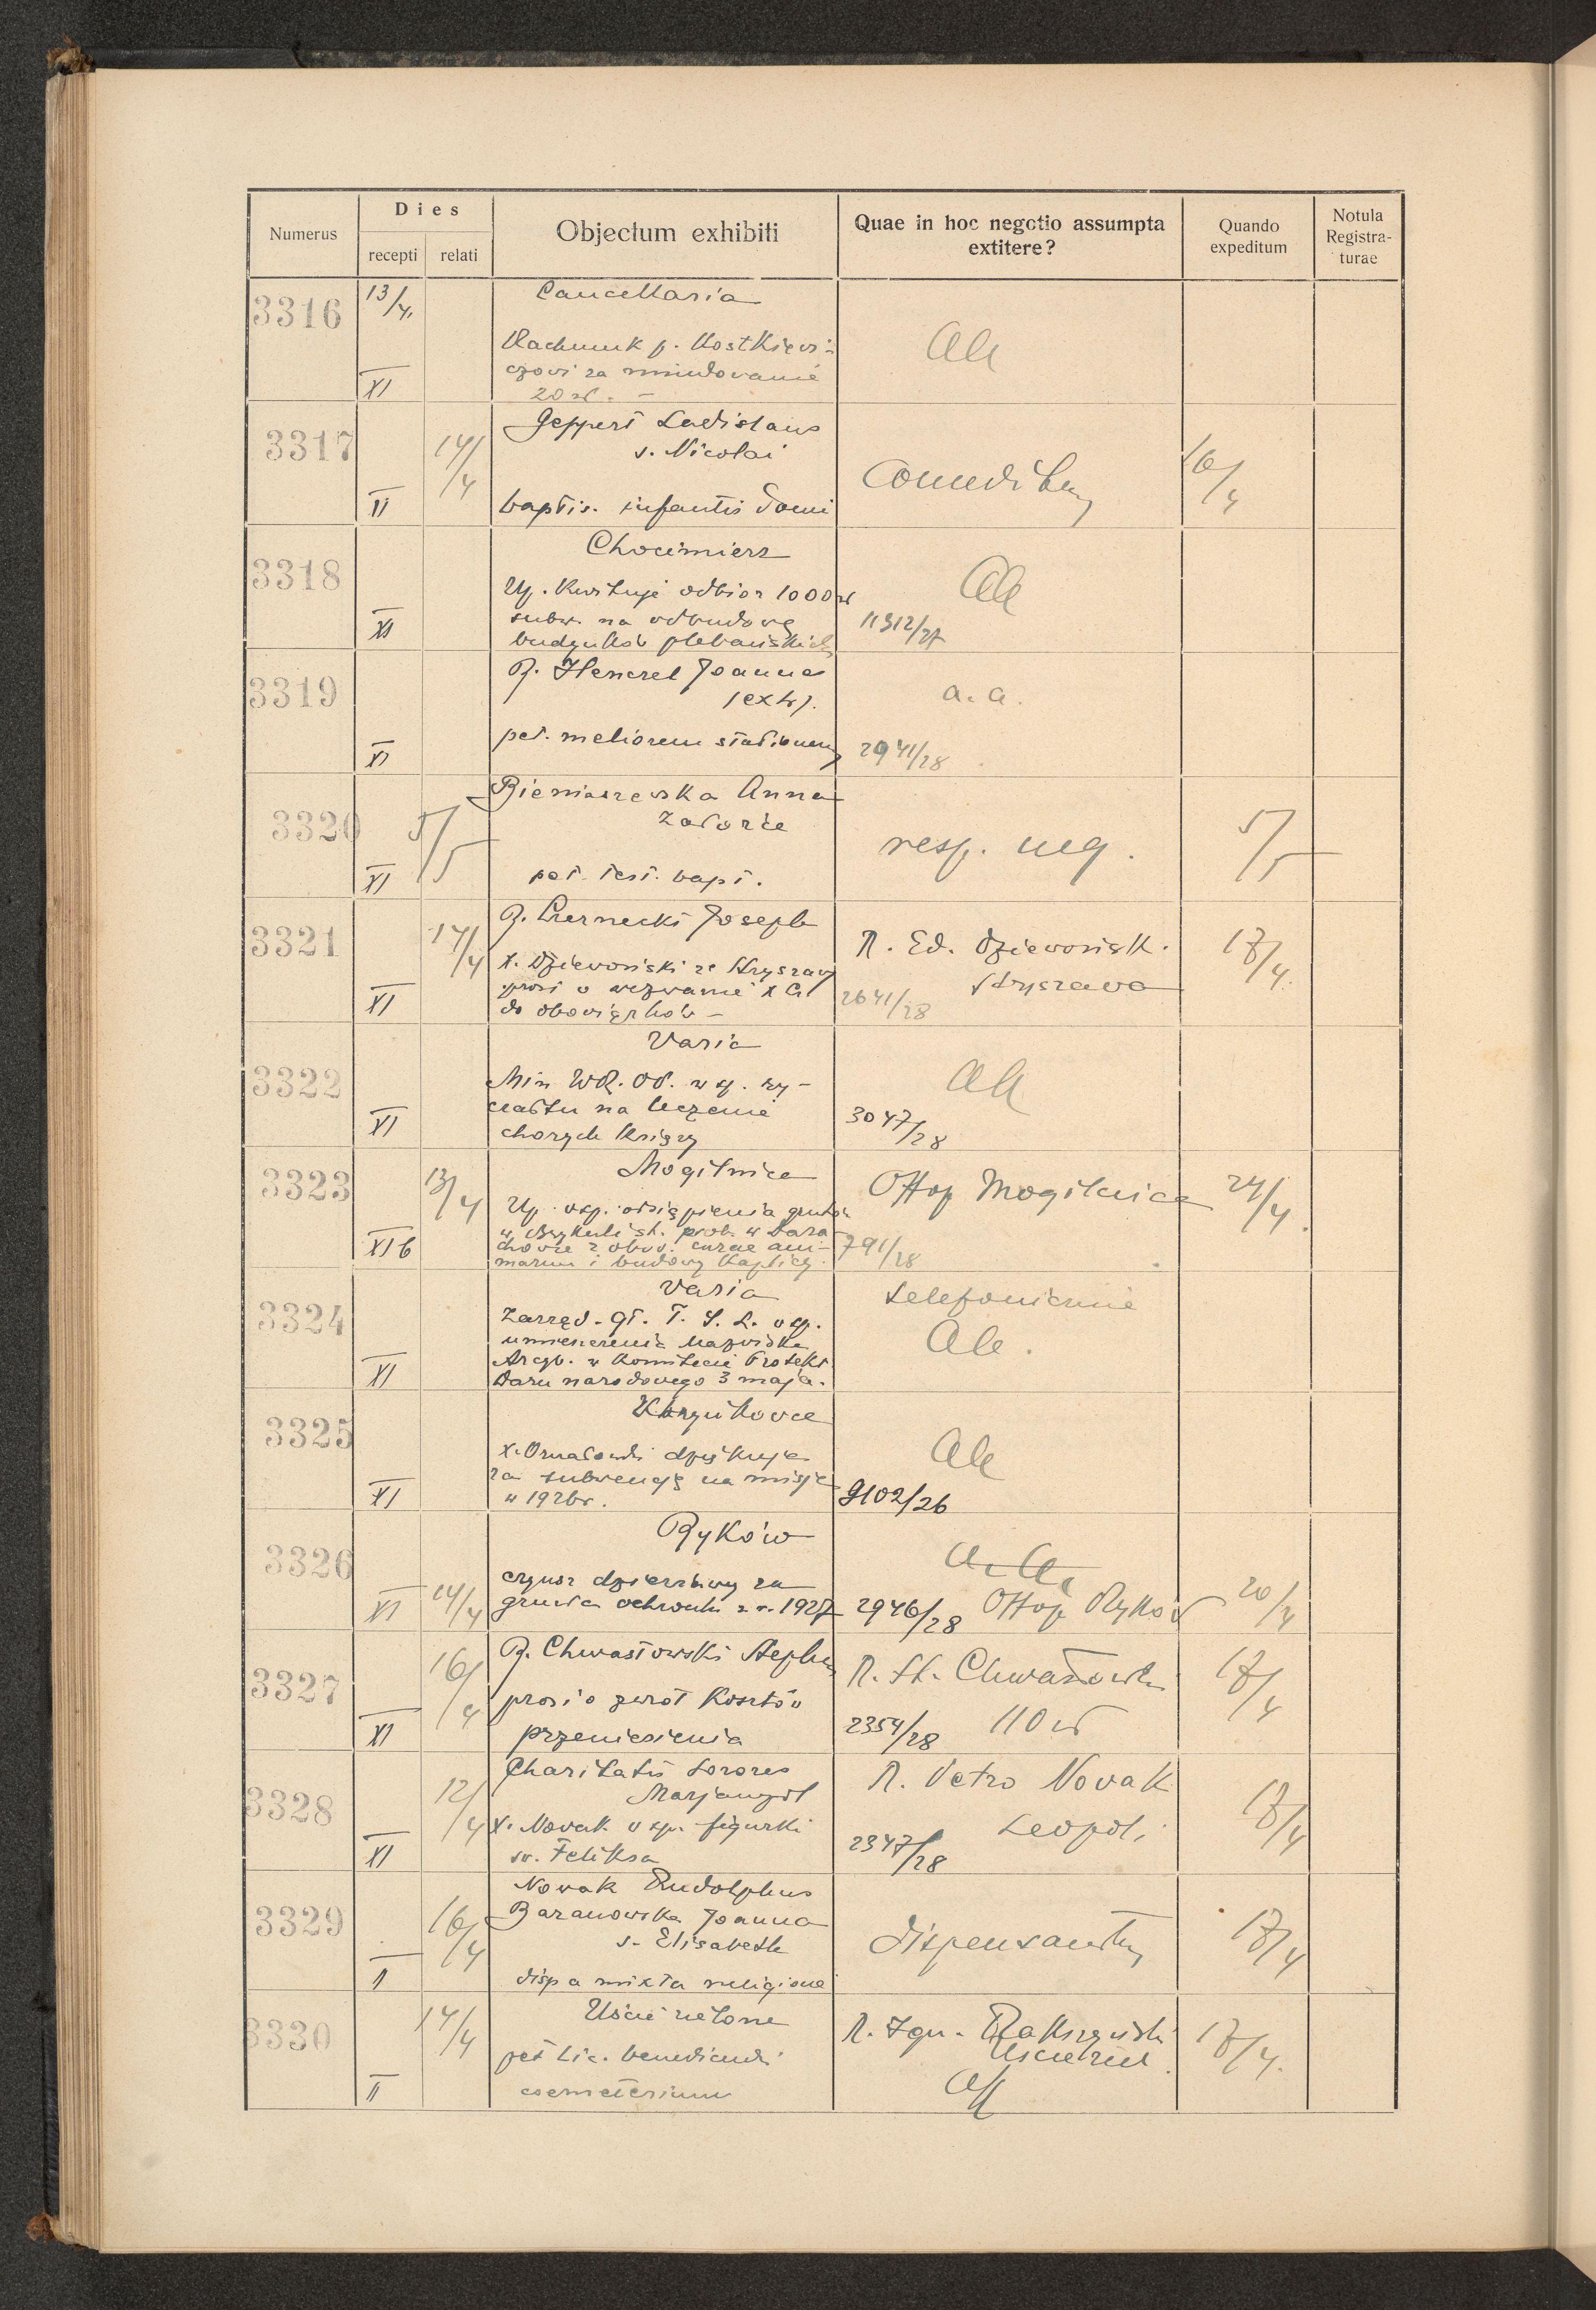 Numerus
Dies
recepti
relati
Objectum exhibiti
Quae in hoc negotio assumpta
extitere?
Quando
expeditum
Notula
Registra-
turae
3316
13/4.
XI
Cancellaria
Rachunek p. Kostkiewi-
czowi za
20 zł. -
3317
VI
14/4
Geppert Ladislaus
s. Nicolai
baptis. infantis domi
16/4
3318
XI
Chocimierz
Up. kwituje odbiór 1000 zł
subw. na odbudowę
budynków plebańskich
11312/27
3319
XI
R. Henzel Joannes
pet. meliorem stationem
a. a.
2941/28
3320
XI
5/5
Bieniaszewska Anna
pet. test. bapt.
resp. neg.
5/5
3321
XI
14/4
R. Czernecki Joseph
x. Dziewoński ze Stryszawy
prosi o wezwanie x Cz
do obowiązków -
R. Ed. Dziewońsk.
Stryszawa
2641/28
17/4.
3322
XI
Varia
Min WR. OP. w sp. ry-
czałtu na leczenie
chorych księży
3047/28
3323
XI b
13/4
Mogilnica
Up. w sp. odstąpienia gruntów
chowie z obow. curae ani-
marum i budowy kaplicy.
Offop Mogilnica
791/28
24/4.
3324
XI
Varia
Zarząd. Gł. T. S. L. w sp.
umieszczenia nazwiska
Arcyb. w Komitecie Protekt.
Daru narodowego 3 maja.
telefonicznie
3325
XI
x. dziękuje
za subwencję na misję
w 1926 r.
9102/26
3326
XI
14/4
Ryków
czynsz dzierżawy za
grunta ochronki z r. 1927
a. a.
2946/28 Offop Ryków
20/4
3327
XI
16/4
R. Chwastowski Stephan
prosi o zwrot kosztów
przeniesienia
R. St. Chwastowski
2354/28 110 zł
17/4
3328
XI
12/4
Charitatis Sorores
x. Nowak w sp. figurki
św. Feliksa
R. Petro Nowak
Leopoli
2347/28
17/4
3329
II
16/4
Nowak Rudolphus
Baranowska Joanna
s. Elisabeth
disp a mixta religione
dispensantur
17/4
3330
II
14/4
Uście zielone
pet lic. benedicendi
coemeterium
R. Ign.
Uscie ziel.
17/4.